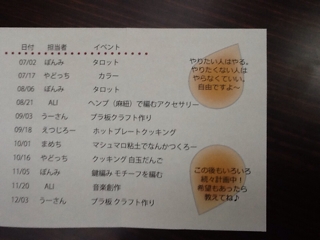 日付 担当者 イベント
07/02 ぽんみ タロット
07/17 やどっち カラー
08/06 ぽんみ タロット
08/21 ALI ヘンプ(麻紐)で編むアクセサリー
09/03 うーさん プラ板クラフト作り
09/18 えつじろー ホットプレートクッキング
10/01 まめち マシュマロ粘土でなんかつくろー
10/16 やどっち クッキング 白玉だんご
11/05 ぽんみ 鍵編み モチーフを編む
11/20 ALI 音楽創作
12/03 うーさん プラ板 クラフト作り
やりたい人はやる。
やりたくない人は
やらなくていい。
自由ですよ~
この後もいろいろ
続々計画中!
希望もあったら
教えてね♪